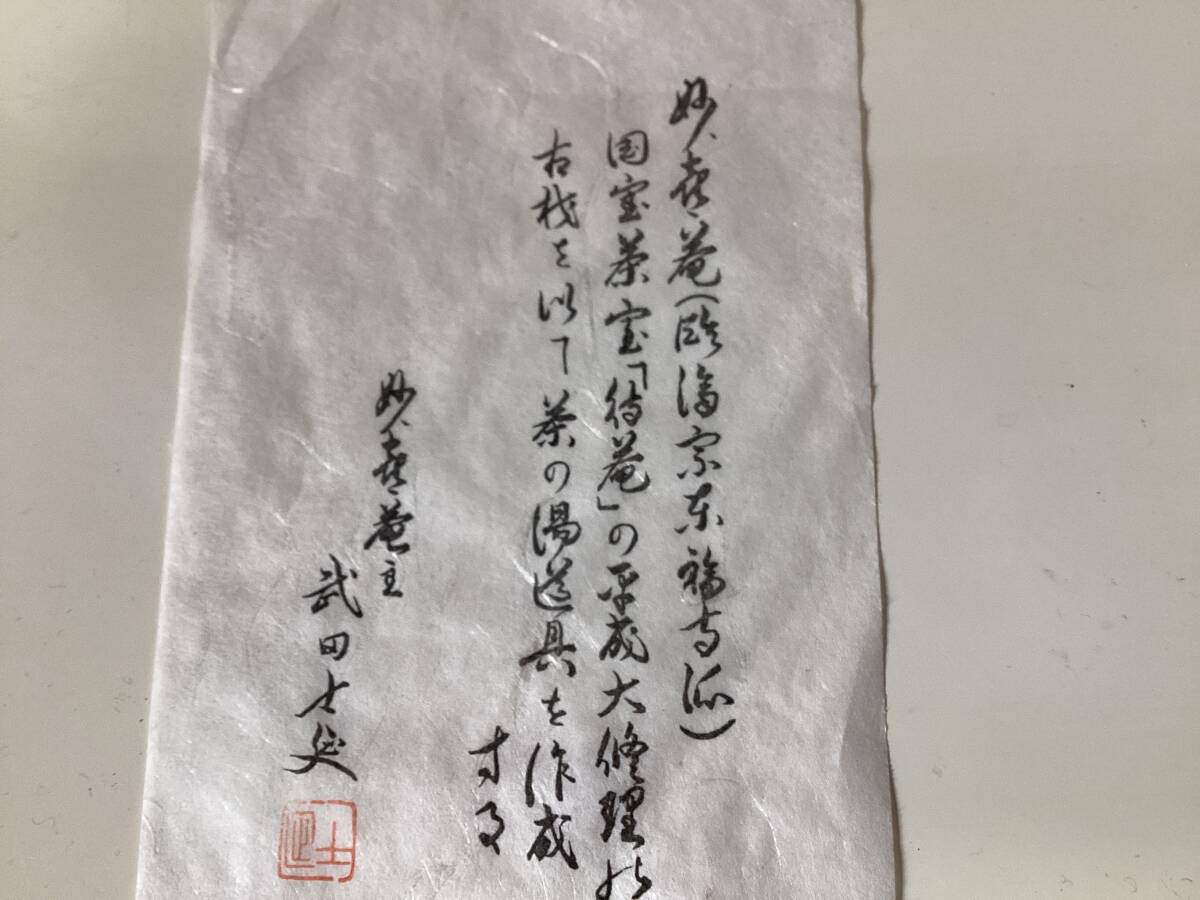 妙喜庵(臨済宗東福寺派)
国宝茶室「待庵」の平成大修理の
古材を以て茶の湯道具を作成
する
妙喜庵主
武田士延
士延